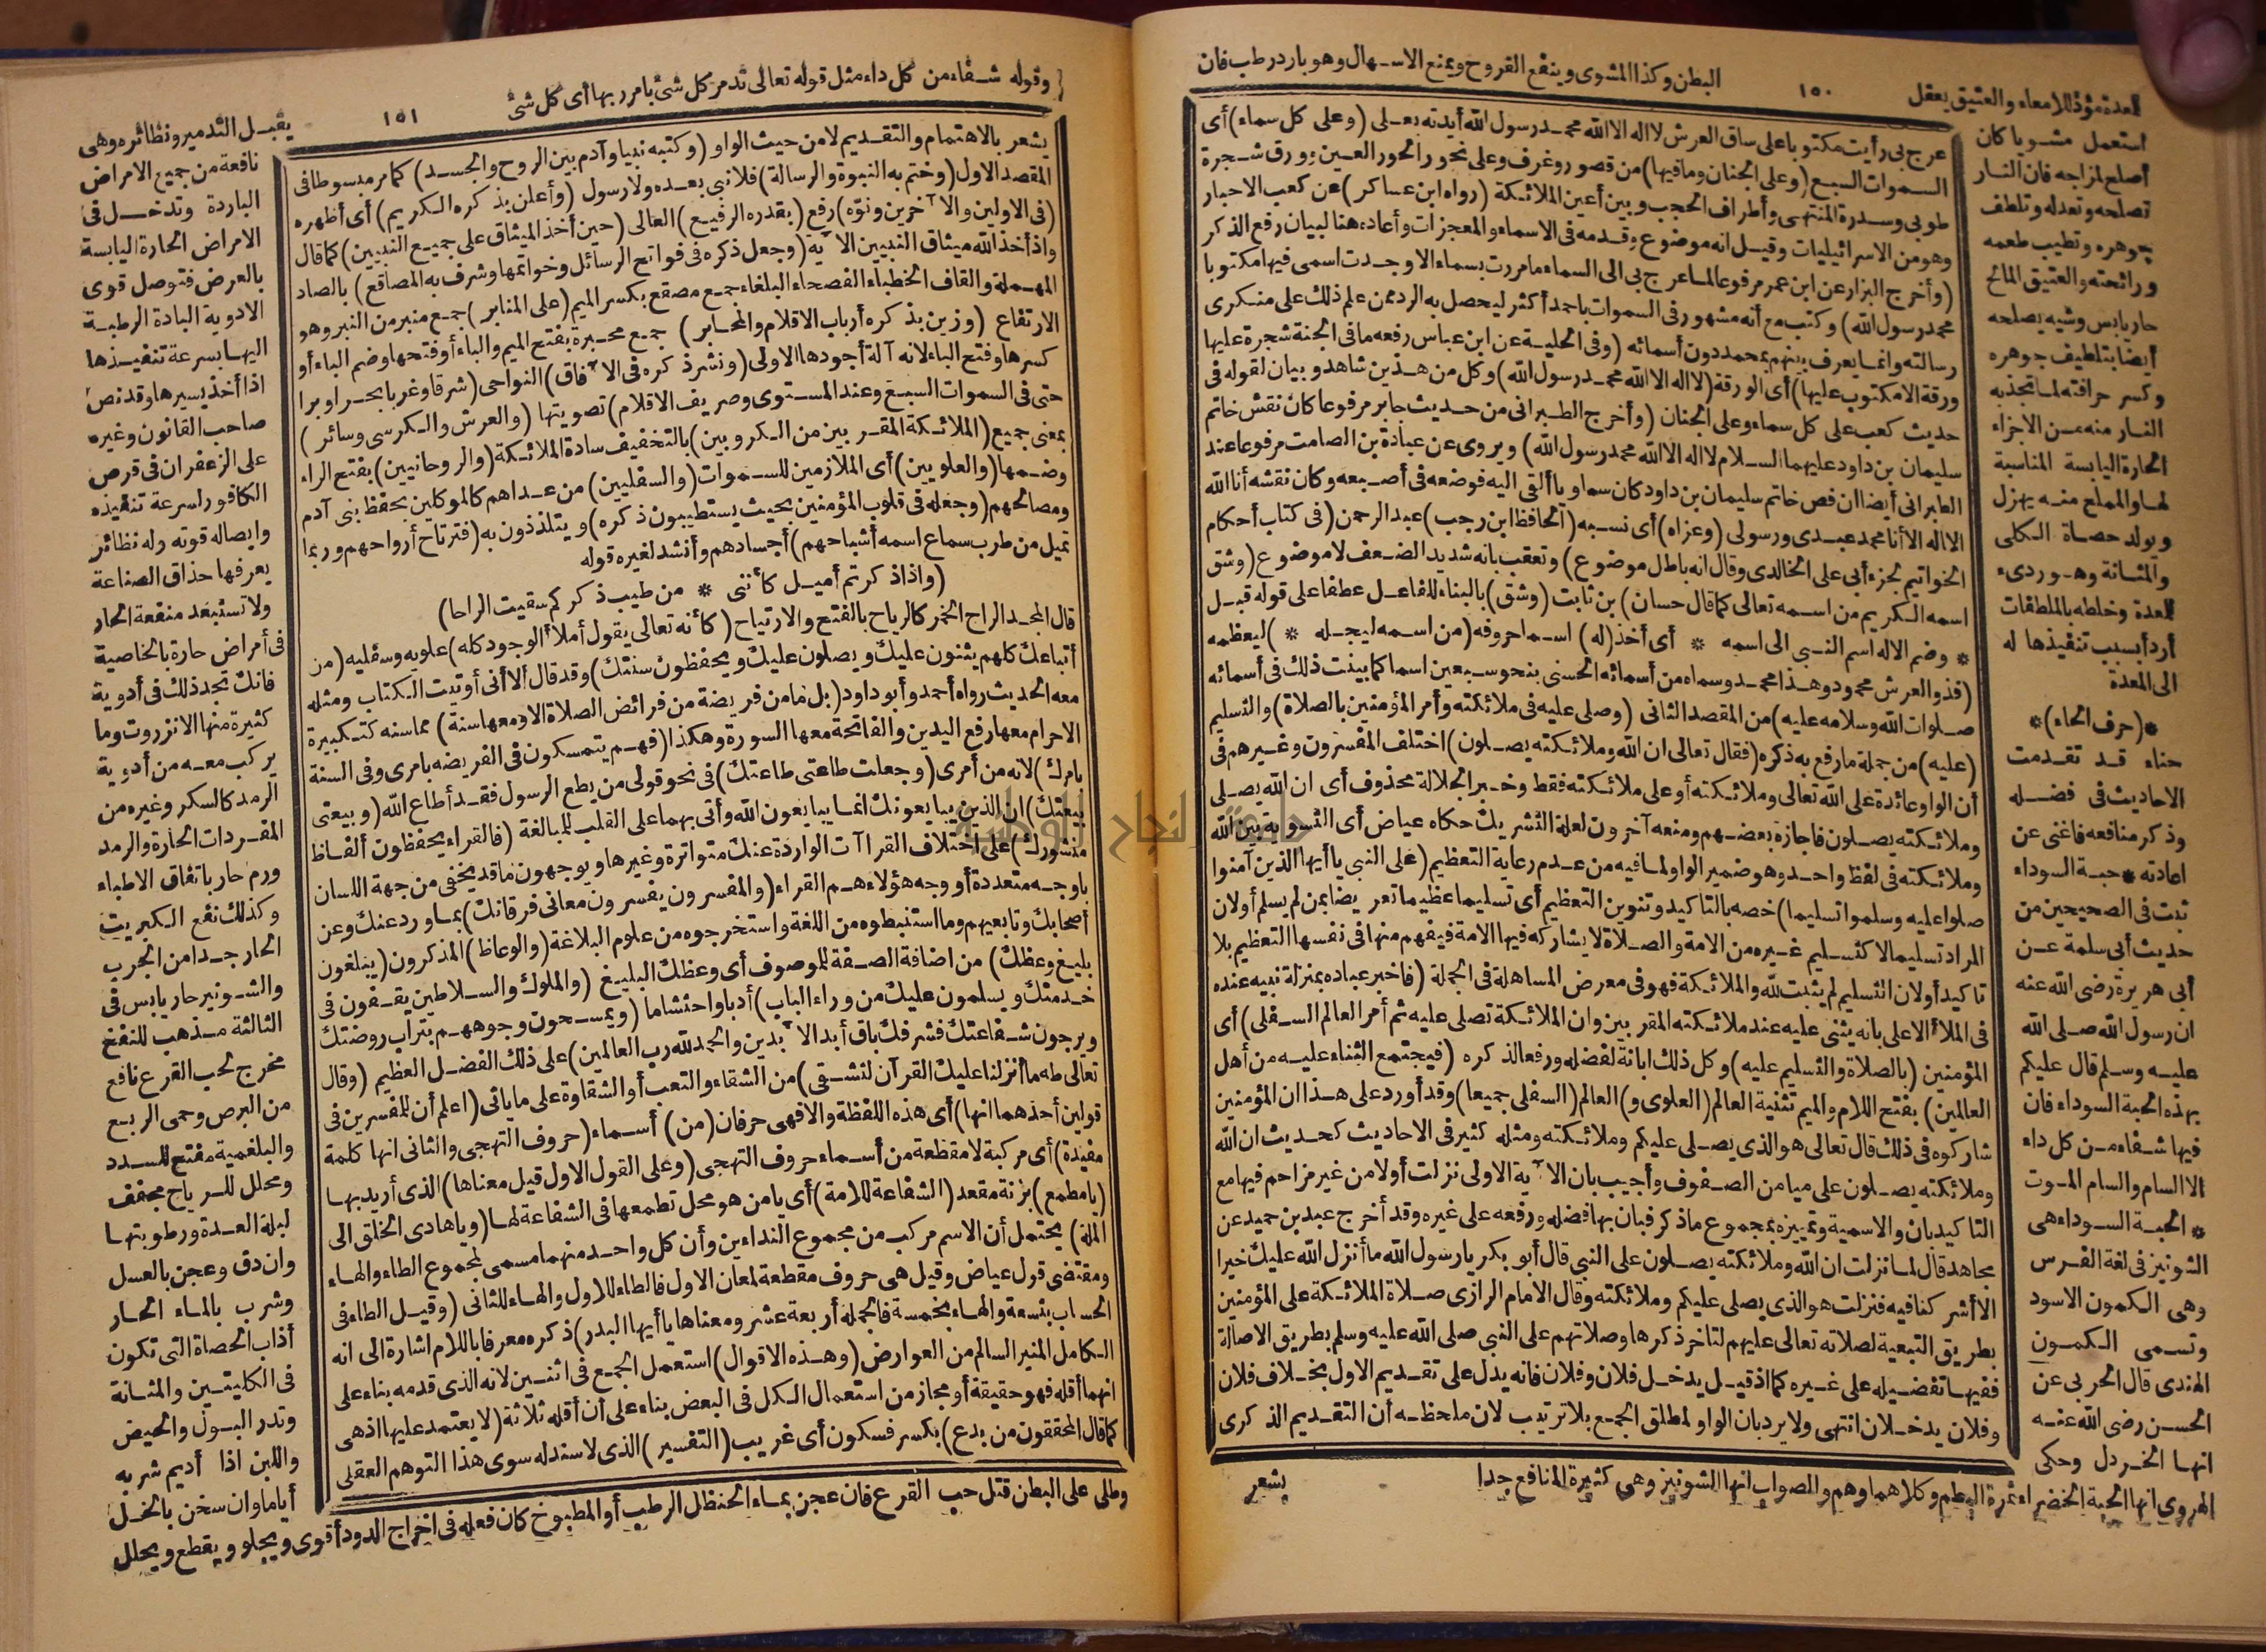 المعدة مؤذ للامعاء والعتيق يعقل
١٥٠
البطن وكذا المشوى وينفع القروح ويمنع الاسهال وهو بارد رطب فان
استعمل مشويا كان
أصلح لمزاجه فان النار
تصلحه وتعدله وتلطف
جوهره وتطيب طعمه
ورائحته والعتيق المالح
حار يابس وشيه يصلحه
أيضا بتلطيف جوهره
وكسر حرافته لما تجذبه
النار منه من الأجزاء
الحارة اليابسة المناسبة
لها والمملح منه يهزل
ويولد حصاة الكلى
والمثانة وهو ردىء
للمعدة وخلطه بالملطفات
أردأ بسبب تنفيذها له
الى المعدة
*(حرف الحاء)*
حناء قد تقدمت
الاحاديث فى فضله
وذكر منافعه فاغنى عن
اعادته * حبة السوداء
ثبت فى الصحيحين من
حديث أبى سلمة عن
أبى هريرة رضى الله عنه
ان رسول الله صلى الله
عليه وسلم قال عليكم
بهذه الحبة السوداء فان
فيها شفاء من كل داء
الا السام والسام الموت
* الحبة السوداء هى
الشونيز فى لغة الفرس
وهى الكمون الاسود
وتسمى الكمون
الهندى قال الحربى عن
الحسن رضى الله عنه
انها الخردل وحكى
الهروى انها الحبة الخضراء ثمرة البطم وكلاهما وهم والصواب انها الشونيز وهى كثيرة المنافع جدا
عرج بى رأيت مكتوبا على ساق العرش لا اله الا الله محمد رسول الله أيدته بعلى (وعلى كل سماء) أى
السموات السبع (وعلى الجنان وما فيها) من قصور وغرف وعلى نحور الحور العين وورق شجرة
طوبى وسدرة المنتهى وأطراف الحجب وبين أعين الملائكة (رواه ابن عساكر) عن كعب الاحبار
وهو من الاسرائيليات وقيل انه موضوع وقدمه فى الاسماء والمعجزات وأعاده هنا لبيان رفع الذكر
(وأخرج البزار عن ابن عمر مرفوعا لما عرج بى الى السماء ما مررت بسماء الا وجدت اسمى فيها مكتوبا
محمد رسول الله) وكتب مع أنه مشهور فى السموات باحمد أكثر ليحصل به الرد ممن علم ذلك على منكرى
رسالته وانما يعرف بينهم بمحمد دون أسمائه (وفى الحلية عن ابن عباس رفعه ما فى الجنة شجرة عليها
ورقة الا مكتوب عليها) أى الورقة (لا اله الا الله محمد رسول الله) وكل من هذين شاهد وبيان لقوله فى
حديث كعب على كل سماء وعلى الجنان (وأخرج الطبرانى من حديث جابر مرفوعا كان نقش خاتم
سليمان بن داود عليهما السلام لا اله الا الله محمد رسول الله) ويروى عن عبادة بن الصامت مرفوعا عند
الطبرانى أيضا ان فص خاتم سليمان بن داود كان سماويا ألقى اليه فوضعه فى أصبعه وكان نقشه أنا الله
لا اله الا أنا محمد عبدى ورسولى (وعزاه) أى نسبه (الحافظ ابن رجب) عبد الرحمن (فى كتاب أحكام
الخواتيم لجزء أبى على الخالدى وقال انه باطل موضوع) وتعقب بانه شديد الضعف لا موضوع (وشق
اسمه الكريم من اسمه تعالى كما قال حسان) بن ثابت (وشق) بالبناء للفاعل عطفا على قوله قبل
* وضم الاله اسم النبى الى اسمه * أى أخذ (له) اسما حروفه (من اسمه ليجله *) ليعظمه
(فذو العرش محمود وهذا محمد وسماه من أسمائه الحسنى بنحو سبعين اسما كما بينت ذلك فى أسمائه
صلوات الله وسلامه عليه) من المقصد الثانى (وصلى عليه فى ملائكته وأمر المؤمنين بالصلاة) والتسليم
(عليه) من جملة ما رفع به ذكره (فقال تعالى ان الله وملائكته يصلون) اختلف المفسرون وغيرهم فى
أن الواو عائدة على الله تعالى وملائكته أو على ملائكته فقط وخبر الجلالة محذوف أى ان الله يصلى
وملائكته يصلون فاجازه بعضهم ومنعه آخرون لعلة التشريك حكاه عياض أى التسوية بين الله
وملائكته فى لفظ واحد وهو ضمير الواو لما فيه من عدم رعاية التعظيم (على النبى يا أيها الذين آمنوا
صلوا عليه وسلموا تسليما) خصه بالتاكيد وتنوين التعظيم أى تسليما عظيما تعريضا بمن لم يسلم أو لان
المراد تسليما لا كتسليم غيره من الامة والصلاة لا يشاركه فيها الامة فيفهم منها فى نفسها التعظيم بلا
تاكيد أو لان التسليم لم يثبت لله والملائكة فهو فى معرض المساهلة فى الجملة (فاخبر عباده بمنزلة نبيه عنده
فى الملأ الاعلى بانه يثنى عليه عند ملائكته المقربين وان الملائكة تصلى عليه ثم أمر العالم السفلى) أى
المؤمنين (بالصلاة والتسليم عليه) وكل ذلك ابانة لفضله ورفعا لذكره (فيجتمع الثناء عليه من أهل
العالمين) بفتح اللام والميم تثنية العالم (العلوى و) العالم (السفلى جميعا) وقد أورد على هذا ان المؤمنين
شاركوه فى ذلك قال تعالى هو الذى يصلى عليكم وملائكته ومثله كثير فى الاحاديث كحديث ان الله
وملائكته يصلون على ميامن الصفوف وأجيب بان الآية الاولى نزلت أولا من غير مزاحم فيها مع
التاكيد بان والاسمية وتمييزه بمجموع ما ذكر فبان بها فضله ورفعه على غيره وقد أخرج عبد بن حميد عن
مجاهد قال لما نزلت ان الله وملائكته يصلون على النبى قال أبو بكر يا رسول الله ما أنزل الله عليك خيرا
الا أشركنا فيه فنزلت هو الذى يصلى عليكم وملائكته وقال الامام الرازى صلاة الملائكة على المؤمنين
بطريق التبعية لصلاته تعالى عليهم لتاخر ذكرها وصلاتهم على النبى صلى الله عليه وسلم بطريق الاصالة
ففيها تفضيله على غيره كما اذ قيل يدخل فلان وفلان فانه يدل على تقديم الاول بخلاف فلان
وفلان يدخلان انتهى ولا يرد بان الواو لمطلق الجمع بلا ترتيب لان ملحظه أن التقديم الذكرى
يشعر
وقوله شفاء من كل داء مثل قوله تعالى تدمر كل شئ بامر ربها أى كل شئ
١٥١
يقبل التدمير ونظائره وهى
نافعة من جميع الامراض
الباردة وتدخل فى
الامراض الحارة اليابسة
بالعرض فتوصل قوى
الادوية الباردة الرطبة
اليها بسرعة تنفيذها
اذا أخذ يسيرها وقد نص
صاحب القانون وغيره
على الزعفران فى قرص
الكافور لسرعة تنفيذه
وايصاله قوته وله نظائر
يعرفها حذاق الصناعة
ولا تستبعد منفعة الحار
فى أمراض حارة بالخاصية
فانك تجد ذلك فى أدوية
كثيرة منها الانزروت وما
يركب معه من أدوية
الرمد كالسكر وغيره من
المفردات الحارة والرمد
ورم حار باتفاق الاطباء
وكذلك نفع الكبريت
الحار جدا من الجرب
والشونيز حار يابس فى
الثالثة مذهب للنفخ
مخرج لحب القرع نافع
من البرص وحمى الربع
والبلغمية مفتح للسدد
ومحلل للرياح مجفف
لبلة المعدة ورطوبتها
وان دق وعجن بالعسل
وشرب بالماء الحار
أذاب الحصاة التى تكون
فى الكليتين والمثانة
وتدر البول والحيض
واللبن اذا أديم شربه
أياما وان سخن بالخل
وطلى على البطن قتل حب القرع فان عجن بماء الحنظل الرطب أو المطبوخ كان فعله فى اخراج الدود أقوى ويجلو ويقطع ويحلل
يشعر بالاهتمام والتقديم لا من حيث الواو (وكتبه نبيا وآدم بين الروح والجسد) كما مر مبسوطا فى
المقصد الاول (وختم به النبوة والرسالة) فلا نبى بعده ولا رسول (وأعلن بذكره الكريم) أى أظهره
(فى الاولين والآخرين ونوه) رفع (بقدره الرفيع) العالى (حين أخذ الميثاق على جميع النبيين) كما قال
واذ أخذ الله ميثاق النبيين الآية (وجعل ذكره فى فواتح الرسائل وخواتمها وشرف به المصاقع) بالصاد
المهملة والقاف الخطباء الفصحاء البلغاء جمع مصقع بكسر الميم (على المنابر) جمع منبر من النبر وهو
الارتفاع (وزين بذكره أرباب الاقلام والمحابر) جمع محبرة بفتح الميم والباء أو فتحها وضم الباء أو
كسرها وفتح الباء لانه آلة أجودها الاولى (ونشر ذكره فى الآفاق) النواحى (شرقا وغربا بحرا وبرا
حتى فى السموات السبع وعند المستوى وصريف الاقلام) تصويتها (والعرش والكرسى وسائر)
بمعنى جميع (الملائكة المقربين من الكروبيين) بالتخفيف سادة الملائكة (والروحانيين) بفتح الراء
وضمها (والعلويين) أى الملازمين للسموات (والسفليين) من عداهم كالموكلين بحفظ بنى آدم
ومصالحهم (وجعله فى قلوب المؤمنين بحيث يستطيبون ذكره) ويتلذذون به (فترتاح أرواحهم وربما
تميل من طرب سماع اسمه أشباحهم) أجسادهم وأنشد لغيره قوله
(واذا ذكرتم أميل كأننى * من طيب ذكركم سقيت الراحا)
قال المجد الراح الخمر كالرياح بالفتح والارتياح (كأنه تعالى يقول أملأ الوجود كله) علويه وسفليه (من
أتباعك كلهم يثنون عليك ويصلون عليك ويحفظون سنتك) وقد قال ألا أنى أوتيت الكتاب ومثله
معه الحديث رواه أحمد وأبو داود (بل ما من فريضة من فرائض الصلاة الا ومعها سنة) مما سنه كتكبيرة
الاحرام معها رفع اليدين والفاتحة معها السورة وهكذا (فهم يتمسكون فى الفريضه بامرى وفى السنة
بامرك) لانه من أمرى (وجعلت طاعتى طاعتك) فى نحو قولى من يطع الرسول فقد أطاع الله (وبيعتى
بيعتك) ان الذين يبايعونك انما يبايعون الله وأتى بهما على القلب للمبالغة (فالقراء يحفظون ألفاظ
منشورك) على اختلاف القراآت الواردة عنك متواترة وغيرها ويوجهون ما قد يخفى من جهة اللسان
باوجه متعددة أو وجه هؤلاء هم القراء (والمفسرون يفسرون معانى فرقانك) بما ورد عنك وعن
أصحابك وتابعيهم وما استنبطوه من اللغة واستخرجوه من علوم البلاغة (والوعاظ) المذكرون (يبلغون
بليغ وعظك) من اضافة الصفة للموصوف أى وعظك البليغ (والملوك والسلاطين يقفون فى
خدمتك ويسلمون عليك من وراء الباب) أدبا واحتشاما (ويمسحون وجوههم بتراب روضتك
ويرجون شفاعتك فشرفك باق أبد الآبدين والحمد لله رب العالمين) على ذلك الفضل العظيم (وقال
تعالى طه ما أنزلنا عليك القرآن لتشقى) من الشقاء والتعب أو الشقاوة على ما ياتى (اعلم أن للمفسرين فى
قولين أحدهما انها) أى هذه اللفظة والا فهى حرفان (من) أسماء (حروف التهجى والثانى انها كلمة
مفيدة) أى مركبة لا مقطعة من أسماء حروف التهجى (وعلى القول الاول قيل معناها) الذى أريد بها
(يا مطمع) بزنة مقعد (الشفاعة للامة) أى يا من هو محل تطمعها فى الشفاعة لها (ويا هادى الخلق الى
الملة) يحتمل أن الاسم مركب من مجموع النداءين وأن كل واحد منهما مسمى لمجموع الطاء والهاء
ومقتضى قول عياض وقيل هى حروف مقطعة لمعان الاول فالطاء للاول والهاء للثانى (وقيل الطاء فى
الحساب بتسعة والهاء بخمسة فالجملة أربعة عشر ومعناها يا أيها البدر) ذكره معرفا باللام اشارة الى انه
الكامل المنير السالم من العوارض (وهذه الاقوال) استعمل الجمع فى اثنين لانه الذى قدمه بناء على
انهما أقله فهو حقيقة أو مجاز من استعمال الكل فى البعض بناء على أن أقله ثلاثة (لا يعتمد عليها اذ هى
كما قال المحققون من بدع) بكسر فسكون أى غريب (التفسير) الذى لا سند له سوى هذا التوهم العقلى
جامعة النجاح الوطنية